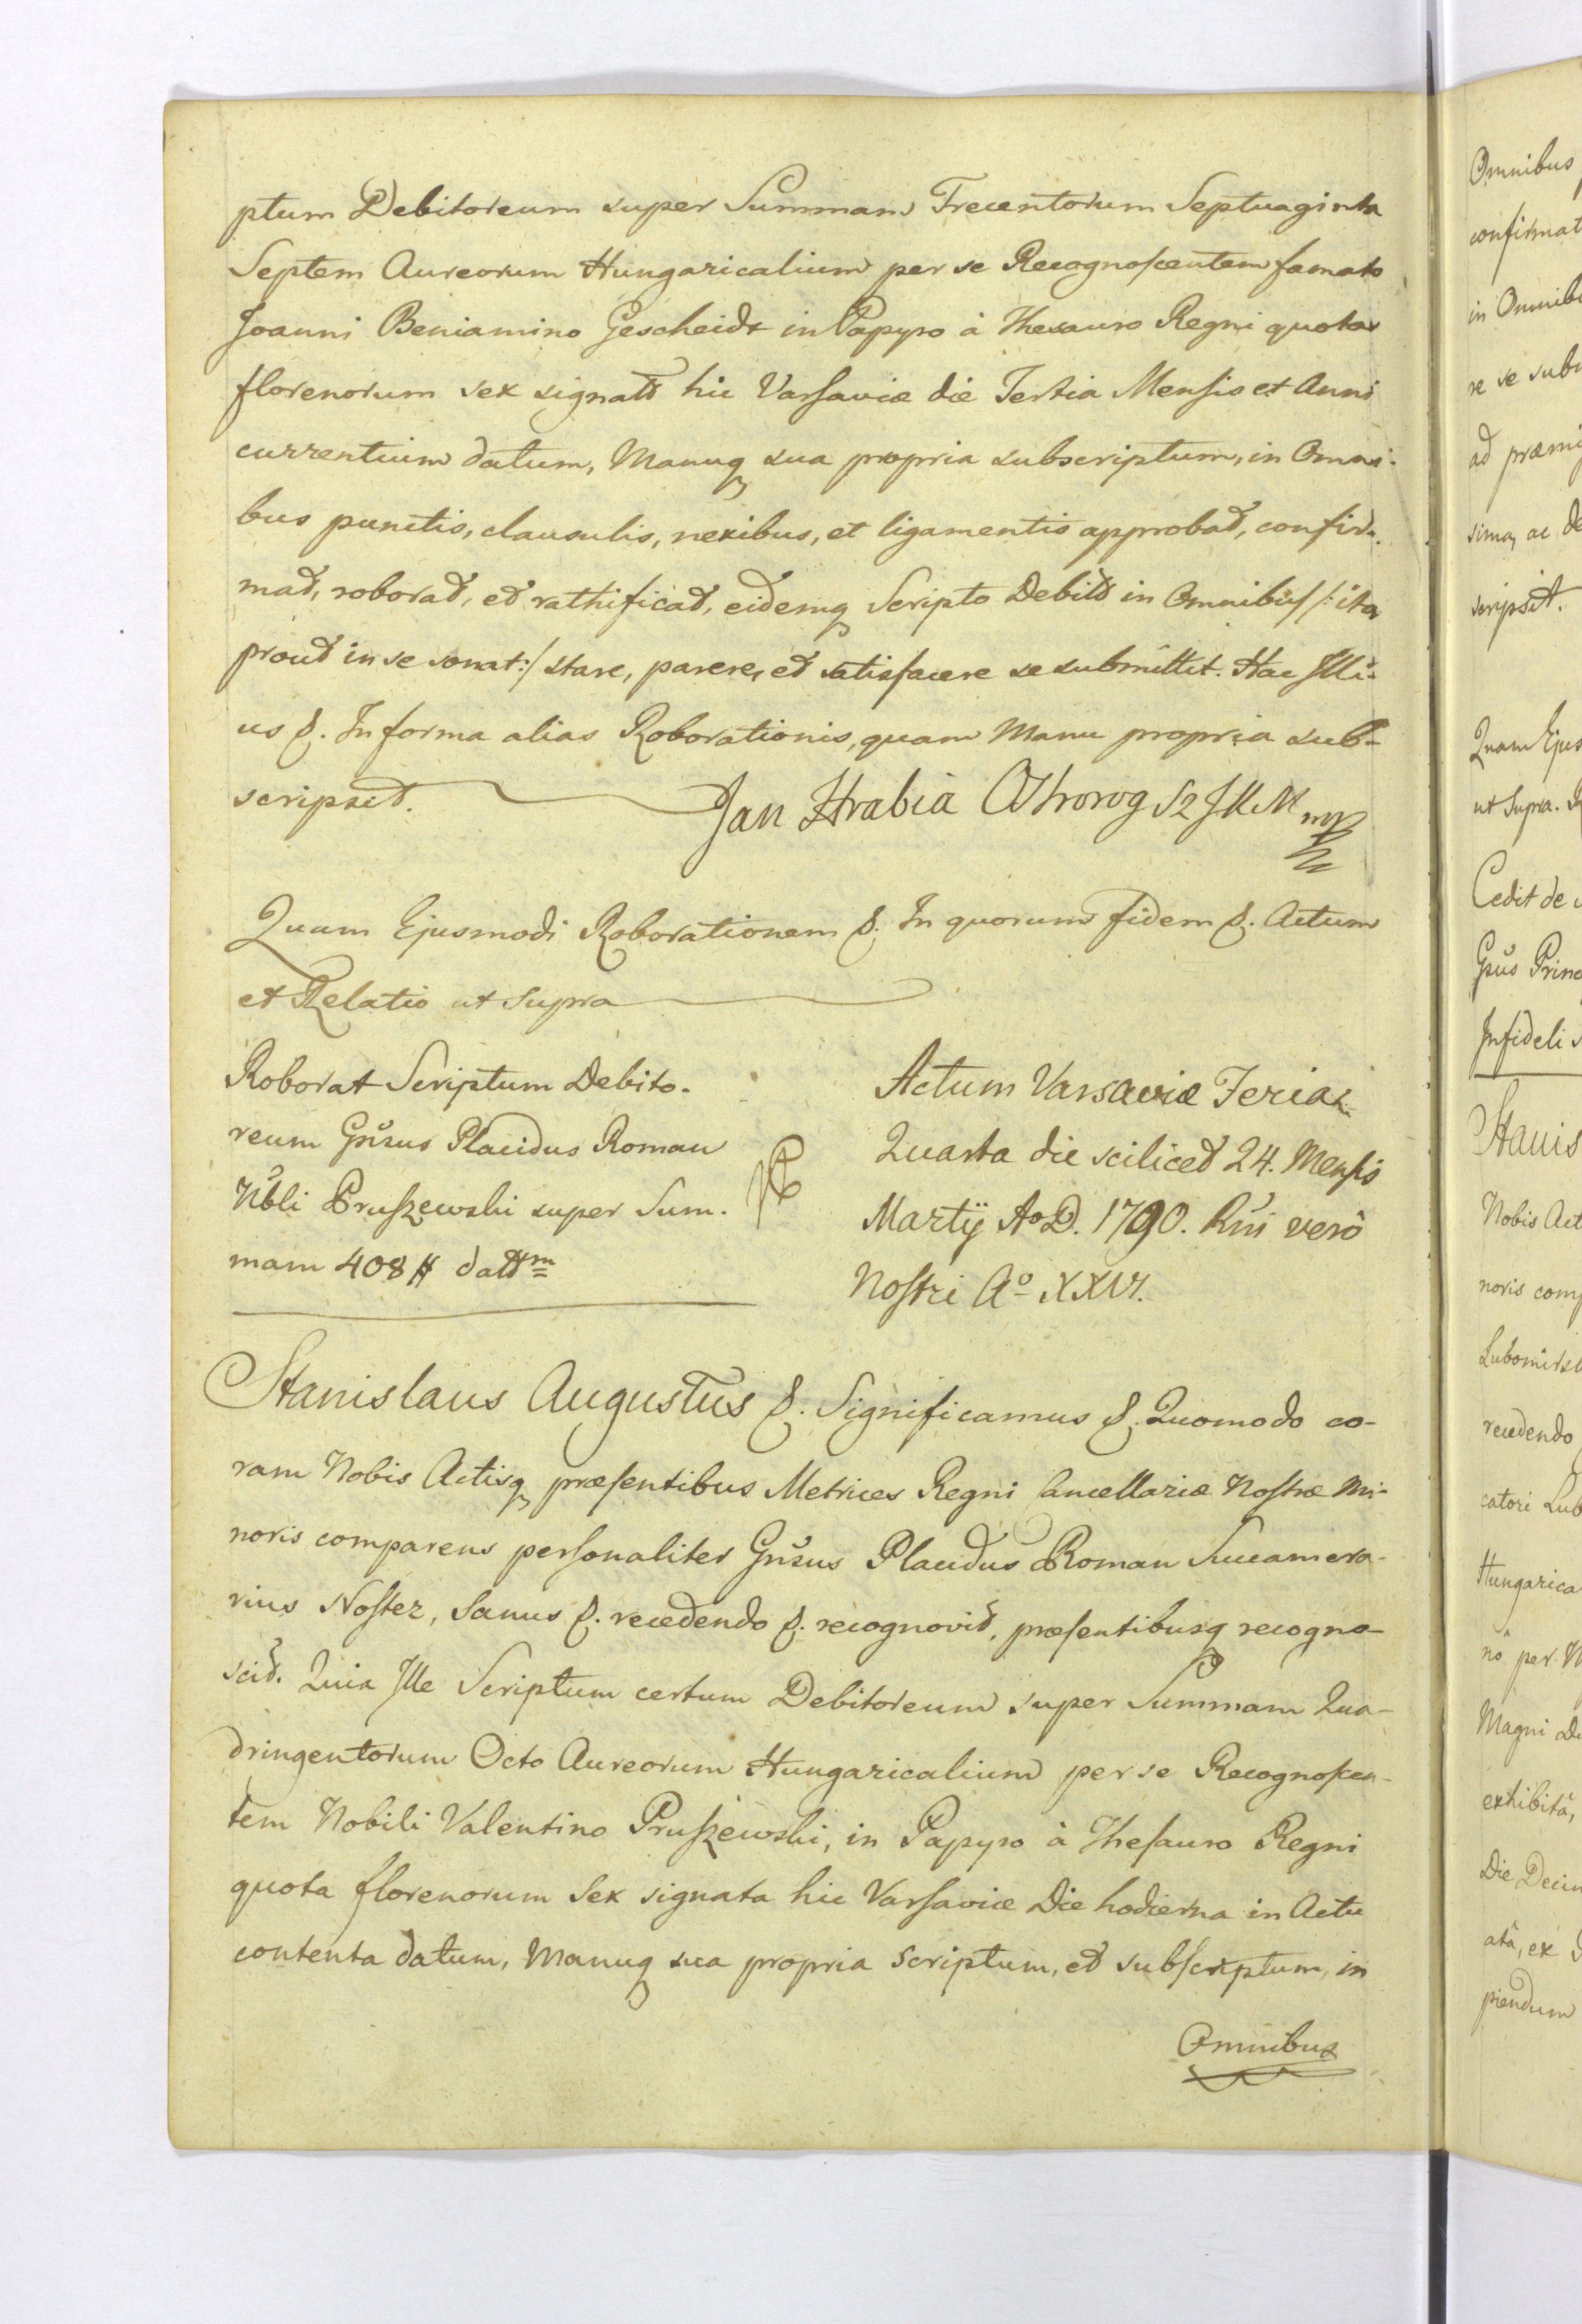 ptum Debitoreum super Summam Trecentorum Septuaginta
Septem Aureorum Hungaricalium per se Recognoscentem famato
Joanni Beniamino Gescheidt in Papyro à Thesauro Regni quota
florenorum sex signatō hic Varsaviæ die Tertia Mensis et Anni
currentium datum, Manuq sua propria subscriptum, in Omni-
bus punctis, clausulis, nexibus, et ligamentis approbat, confir-
mat, roborat, et rathificat, eidemq Scripto Debitō in Omnibus /: ita
prout in se sonat :/ stare, parere, et satisfacere se submittit. Hac Illi-
us &. In forma alias Roborationis, quam Manu propria sub-
scripsit. Jan Hrabia Ostrorog SzJKM mp
Quam Ejusmodi Roborationem &. In quorum fidem &. Actum
et Relatio ut supra
Roborat Scriptum Debito-
reum Gnsus Placidus Roman
Nbli Pruszewski super Sum-
mam 408 # dattm
Actum Varsaviæ Feria
Quarta die scilicet 24. Mensis
Martÿ Ao D. 1790. Rni verò
Nostri Ao XXVI.
Stanislaus Augustus &. Significamus &. Quomodo co-
ram Nobis Actisq præsentibus Metrices Regni Cancellariæ Nostræ Mi-
noris comparens personaliter Gnsus Placidus Roman Succamera-
rius Noster, Sanus &. recedendo &. recognovit, præsentibusq recogno-
scit. Quia Ille Scriptum certum Debitoreum super Summam Qua-
dringentorum Octo Aureorum Hungaricalium per se Recognoscen-
tem Nobili Valentino Pruszewski, in Papyro à Thesauro Regni
quota florenorum Sex signata hic Varsaviæ Die hodierna in Actu
contenta datum, Manuq sua propria scriptum, et subscriptum, in
Omnibus
Omnibus
confirmat
in Omnib
re se sub
ad præmi
sima, ac de
scripsit.
Quam Ejus
ut Supra.
Cedit de
Gnus Prin
Infideli
Stanis
Nobis Act
noris com
Lubomirs
recedendo
catori Lub
Hungarica
no per
Magni D
exhibitâ,
Die Decim
atâ, ex
piendum